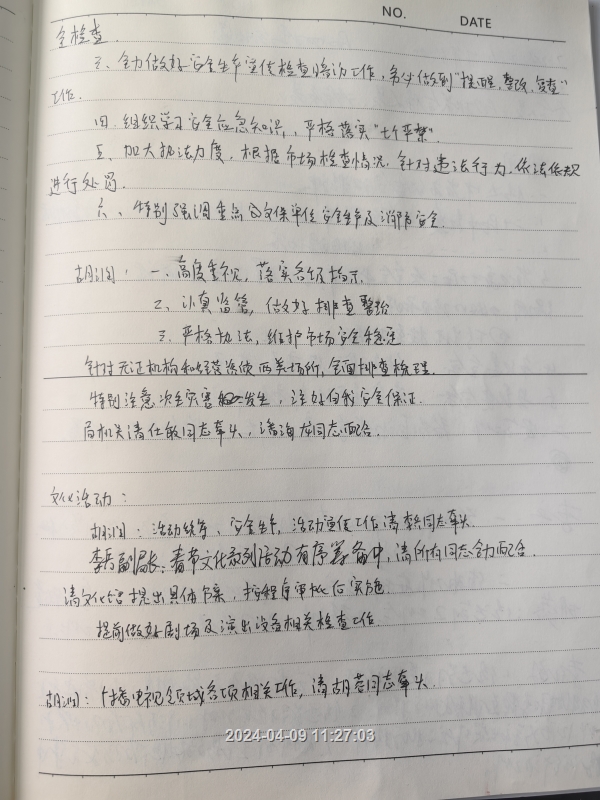 NO. DATE
全检查.
三、全力做好安全生产宣传检查培训工作,务必做到“提醒、整改、复查”
工作.
四、组织学习安全应急知识,严格落实“七个严禁”.
五、加大执法力度,根据市场检查情况,针对违法行为,依法依规
进行处罚.
六、特别强调重点文保单位安全生产及消防安全.
胡润:一、高度重视,落实各级指示.
二、认真监管,做好排查整治
三、严格执法,维护市场安全稳定
针对无证机构和设施两类场所,全面排查梳理.
特别注意次生灾害发生,注好自我安全保证.
局机关请仕敏同志牵头,请海龙同志配合.
文化活动:
胡润:活动统筹、安全生产,活动宣传工作请李兵同志牵头.
李兵副局长:春节文化系列活动有序筹备中,请所有同志全力配合.
请文化馆提出具体方案,按程序审批后实施.
提前做好剧场及演出设备相关检查工作.
胡润:广播电视领域各项相关工作,请胡蓉同志牵头.
2024-04-09 11:27:03